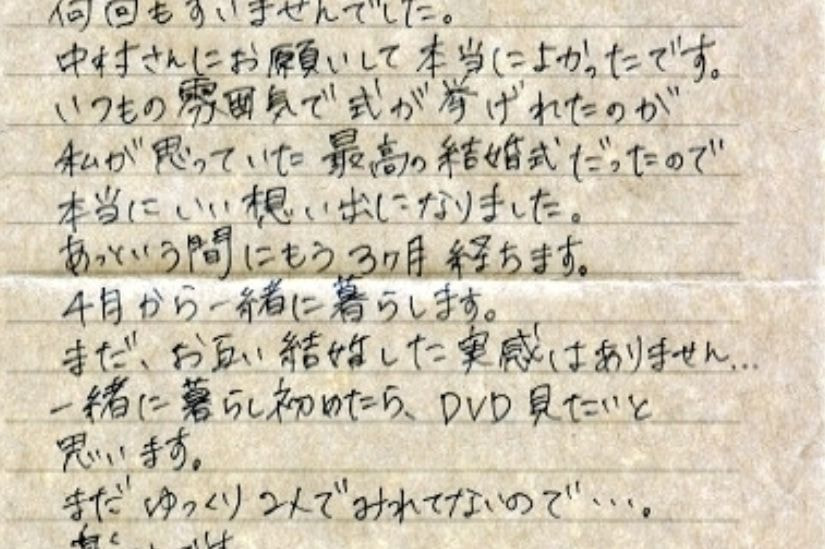 何回もすいませんでした。
中村さんにお願いして本当によかったです。
いつもの雰囲気で式が挙げれたのが
私が思っていた最高の結婚式だったので
本当にいい想い出になりました。
あっという間にもう3ヶ月経ちます。
4月から一緒に暮らします。
まだ、お互い結婚した実感はありません…
一緒に暮らし初めたら、DVD見たいと
思います。
まだゆっくり2人でみれてないので…。